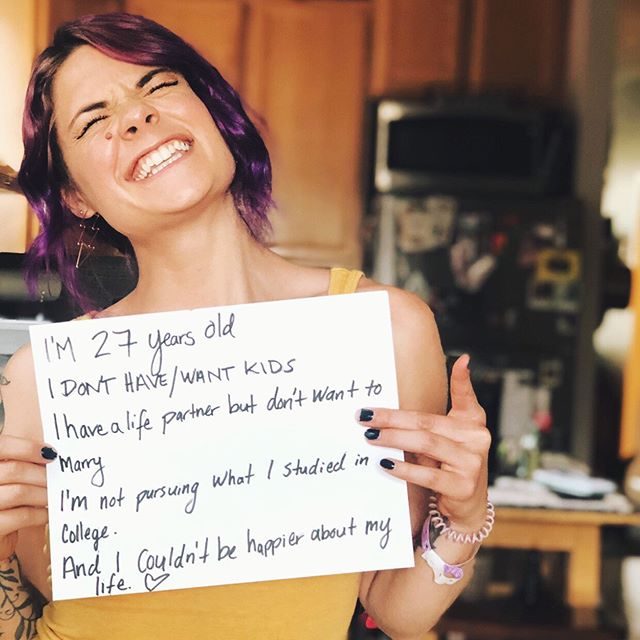 I'M 27 years old
I DONT HAVE/WANT KIDS
I have a life partner but don't want to
Marry
I'm not pursuing what I studied in
College.
And I couldn't be happier about my
life. ♡